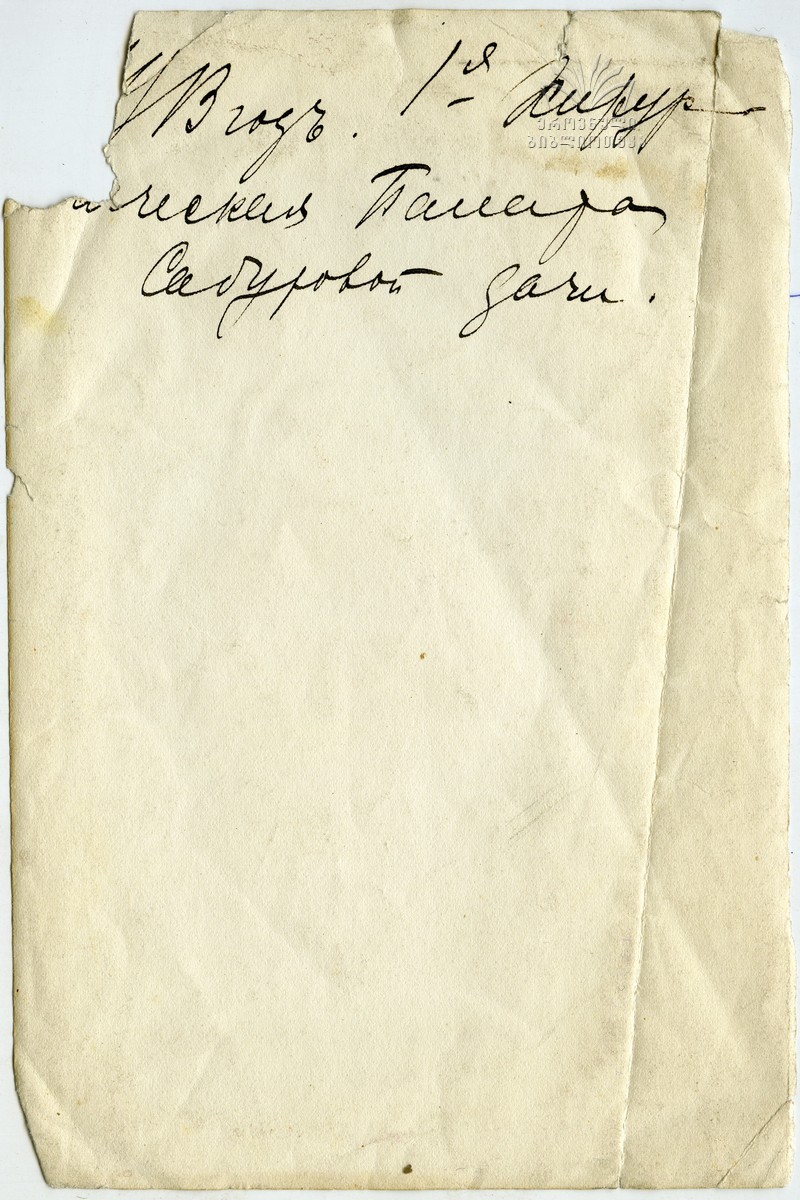 годъ. 1я Хирур
ическая Палата
Сабуровой дачи.
ეროვნული
ბიბლიოთეკა